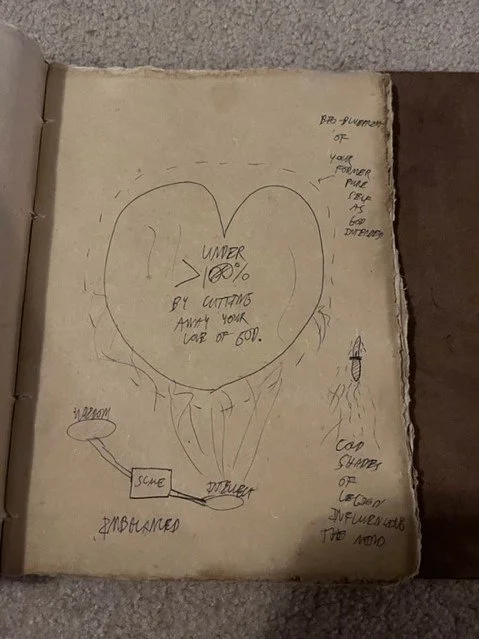 BIO-BLUEPRINT
OF
YOUR
FORMER
PURE
SELF
AS
GOD
INTENDED
UNDER
>100%
BY CUTTING
AWAY YOUR
LOVE OF GOD.
WISDOM
SCALE
INTELLECT
IMBALANCED
COLD
SHADES
OF
LEGION
INFLUENCING
THE MIND